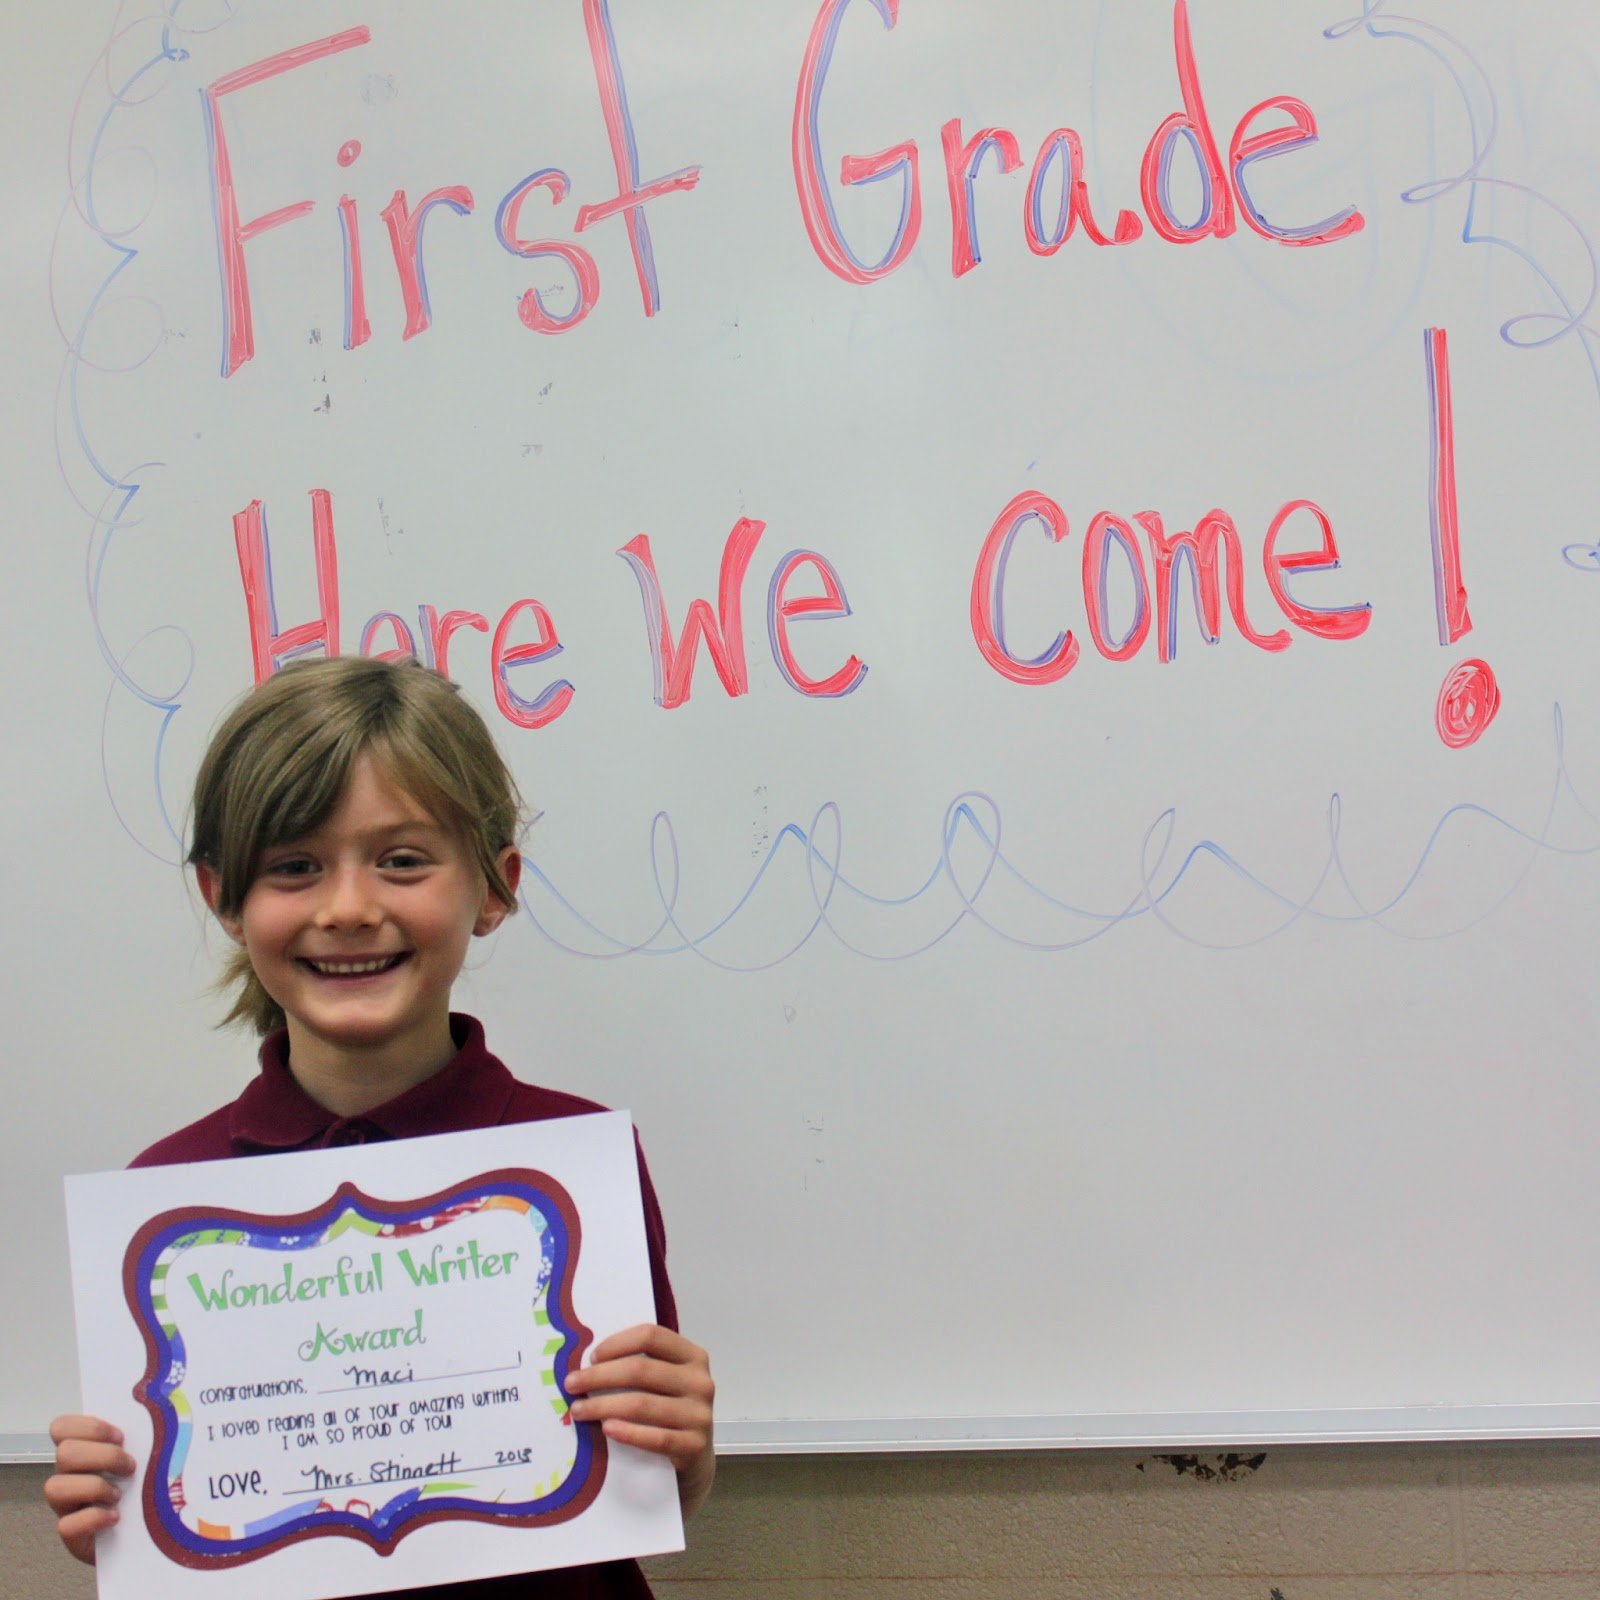 First Grade
Here We Come!
Wonderful Writer
Award
Congratulations, Maci !
I loved reading all of your amazing writing.
I am so proud of you!
Love, Mrs. Stinnett 2013